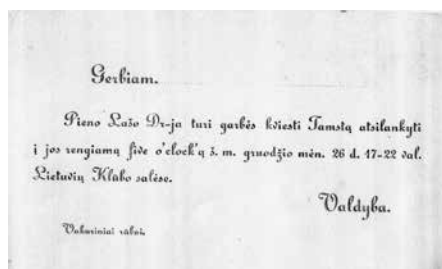 Gerbiam.
Pieno Lašo Dr-ja turi garbės kviesti Tamstą atsilankyti
į jos rengiamą five o'clock'ą š. m. gruodžio mėn. 26 d. 17-22 val.
Lietuvių Klubo salėse.
Valdyba.
Vakariniai rūbai.